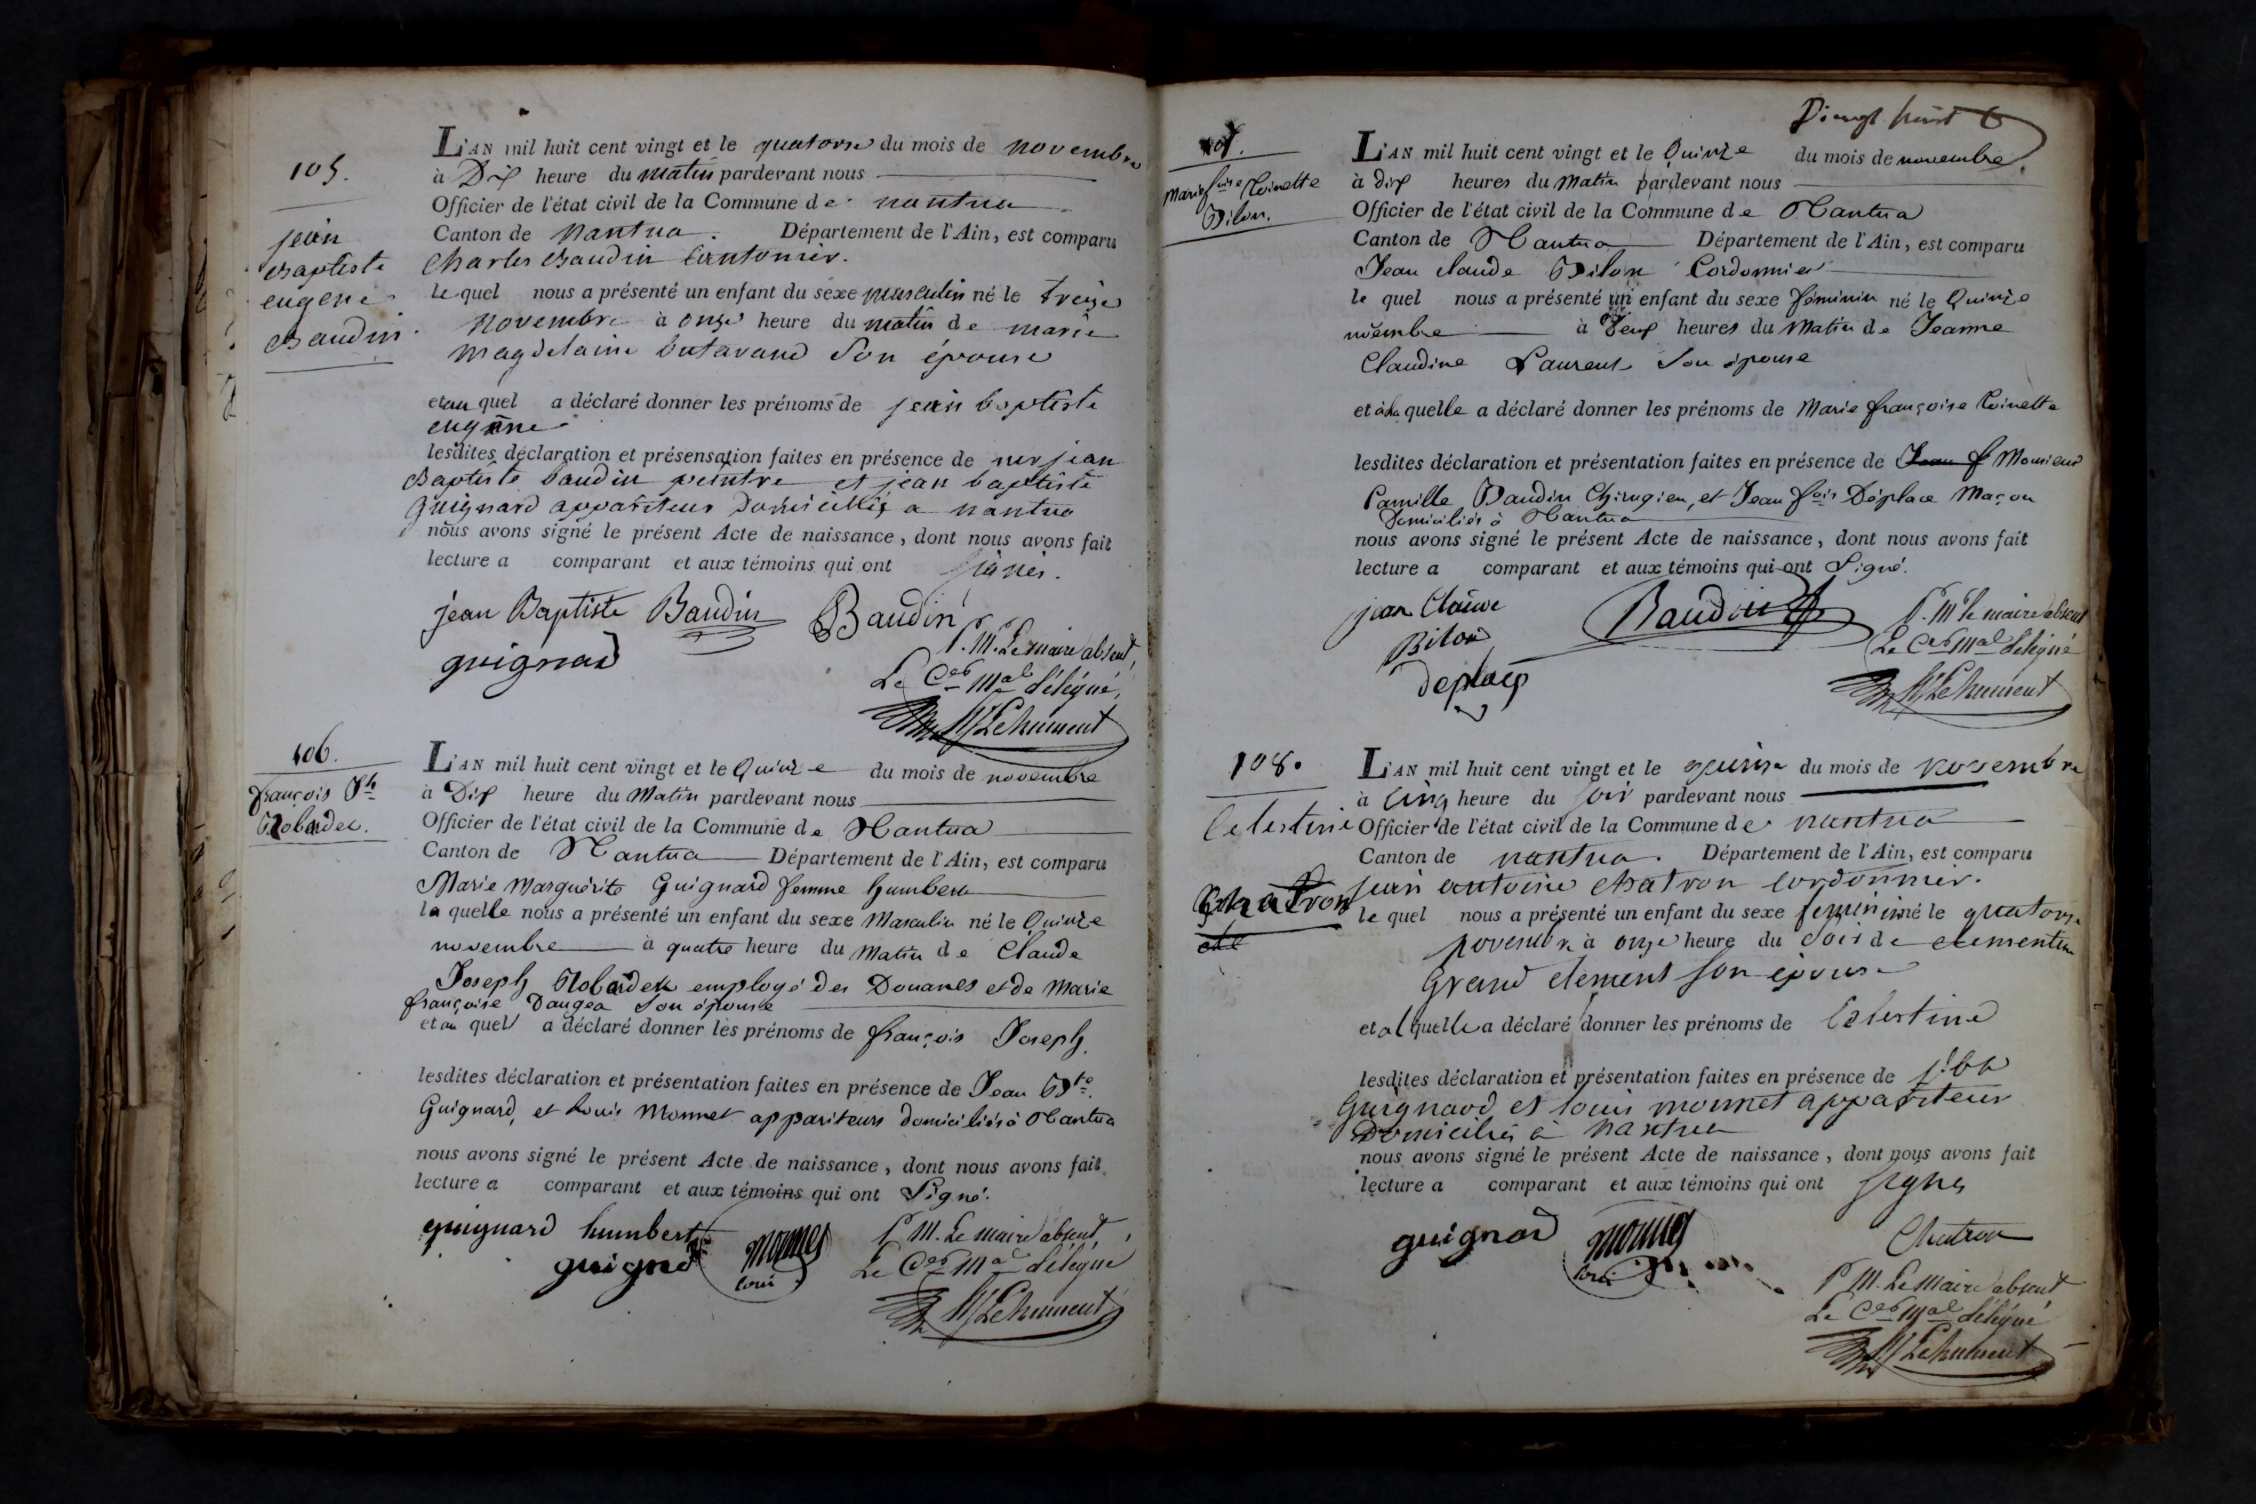 105.
jean
Baptiste
eugene
Baudin.
L'AN mil huit cent vingt et le quatorze du mois de novembre
à Dix heure du matin pardevant nous
Officier de l'état civil de la Commune de nantua
Canton de Nantua. Département de l'Ain, est comparu
Charles Baudin Cantonier.
lequel nous a présenté un enfant du sexe masculin né le treize
Novembre à onze heure du matin de marie
magdelaine butavand Son épouse
et au quel a déclaré donner les prénoms de jean baptiste
eugene
lesdites déclaration et présensation faites en présence de jean
Baptiste baudin peintre et jean baptiste
guignard appariteur Domiciliés a nantua
nous avons signé le présent Acte de naissance, dont nous avons fait
lecture a comparant et aux témoins qui ont signés.
jean Baptiste Baudin Baudin
guignard
P. M. Le maire absent,
Le Cer Mal délégué,
106.
françois Jh
Robadet.
L'AN mil huit cent vingt et le Quinze du mois de novembre
à Dix heure du Matin pardevant nous
Officier de l'état civil de la Commune de Nantua
Canton de Nantua Département de l'Ain, est comparu
Marie Marguérite Guignard femme humbert
la quelle nous a présenté un enfant du sexe Masculin né le Quinze
novembre à quatre heure du Matin de Claude
Joseph employé des Douanes et de Marie
françoise Dangea Son épouse
et au quel a déclaré donner les prénoms de françois Joseph.
lesdites déclaration et présentation faites en présence de Jean Bte
Guignard, et Louis Monnet appariteurs domiciliés à Nantua
nous avons signé le présent Acte de naissance, dont nous avons fait
lecture a comparant et aux témoins qui ont Signé.
guignard humbert
guignard monnet
loui
P. M. Le maire absent,
Le Cer Mal délégué
vingt huit
107.
Marie foise Toinette
Bilon.
L'AN mil huit cent vingt et le Quinze du mois de novembre
à dix heures du Matin pardevant nous
Officier de l'état civil de la Commune de Nantua
Canton de Nantua Département de l'Ain, est comparu
Jean claude Bilon Cordonnier
le quel nous a présenté un enfant du sexe féminin né le Quinze
novembre à heures du Matin de Jeanne
Claudine Laurent Son épouse
et à la quelle a déclaré donner les prénoms de Marie françoise Toinette
lesdites déclaration et présentation faites en présence de Jean f Monsieur
Camille Baudin Chirugien, et Jean fois Déplace Maçon
Domiciliés à Nantua
nous avons signé le présent Acte de naissance, dont nous avons fait
lecture a comparant et aux témoins qui ont Signé.
jean Claude
Bilon
Baudin
deplace
P. Mr le maire absent
Le Cer Mal délégué
108.
Celestine
Chatron
L'AN mil huit cent vingt et le quinze du mois de novembre
à Cinq heure du soir pardevant nous
Officier de l'état civil de la Commune de nantua
Canton de nantua. Département de l'Ain, est comparu
jean antoine chatron cordonnier.
le quel nous a présenté un enfant du sexe feminin né le quatorze
novembre à onze heure du soir de clementine
Grand clement son épouse
et a l quelle a déclaré donner les prénoms de Celestine
lesdites déclaration et présentation faites en présence de
Guignard et louis monnet appariteur
Domiciliés à nantua
nous avons signé le présent Acte de naissance, dont nous avons fait
lecture a comparant et aux témoins qui ont signés
guignard monnet
loui
Chatron
P. M. Le Maire absent
Le Cer Mal délégué